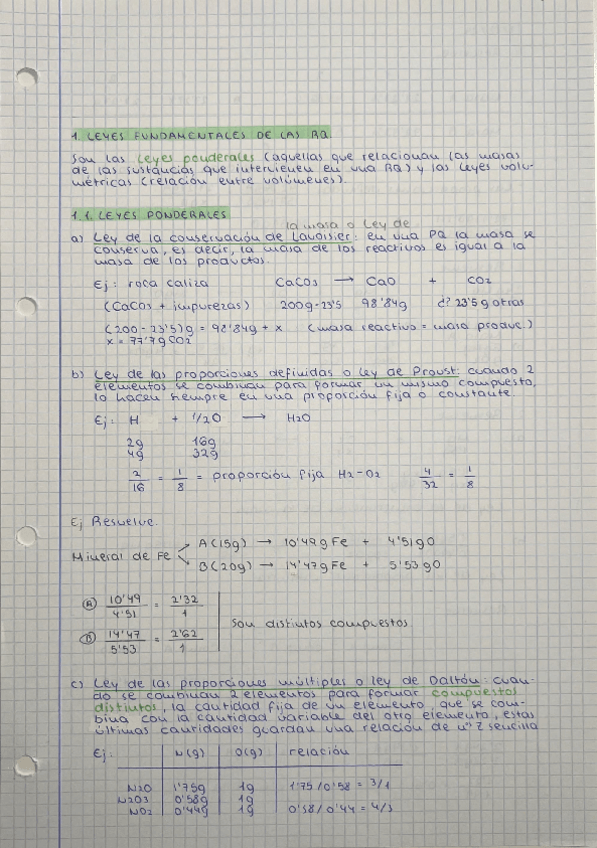 1. LEYES FUNDAMENTALES DE LAS RQ
Son las leyes ponderales (aquellas que relacionan las masas
de las sustancias que intervienen en una RQ) y las leyes volu-
métricas (relación entre volúmenes).
1.1. LEYES PONDERALES
la masa o Ley de
a) Ley de la conservación de Lavoisier: en una RQ la masa se
conserva, es decir, la masa de los reactivos es igual a la
masa de los productos.
Ej: roca caliza CaCO3 → CaO + CO2
(CaCO3 + impurezas) 200g-23'5 98'84g ¿? 23'5 g otras
(200 - 23'5)g = 98'84g + x (masa reactivo = masa produc.)
x = 77'7g CO2
b) Ley de las proporciones definidas o ley de Proust: cuando 2
elementos se combinan para formar un mismo compuesto,
lo hacen siempre en una proporción fija o constante
Ej: H + 1/2O → H2O
2g 16g
4g 32g
2/16 = 1/8 = proporción fija H2-O2 4/32 = 1/8
Ej Resuelve.
A(15g) → 10'49g Fe + 4'51gO
Mineral de Fe
B(20g) → 14'47g Fe + 5'53gO
A 10'49/4'51 = 2'32/1
Son distintos compuestos
B 14'47/5'53 = 2'62/1
c) Ley de las proporciones múltiples o ley de Daltón: cuan-
do se combinan 2 elementos para formar compuestos
distintos, la cantidad fija de un elemento, que se com-
bina con la cantidad variable del otro elemento, estas
últimas cantidades guardan una relación de nº Z sencilla
Ej: N(g) O(g) relación
N2O 1'75g 1g 1'75/0'58 = 3/1
N2O3 0'58g 1g
NO2 0'44g 1g 0'58/0'44 = 4/3